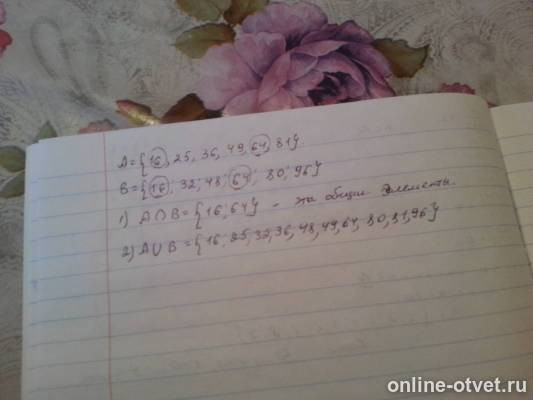 A={16, 25, 36, 49, 64, 81}.
B={16, 32, 48, 64, 80, 96}
1) A∩B={16, 64} - это общие элементы.
2) A∪B={16, 25, 32, 36, 48, 49, 64, 80, 81, 96}
online-otvet.ru